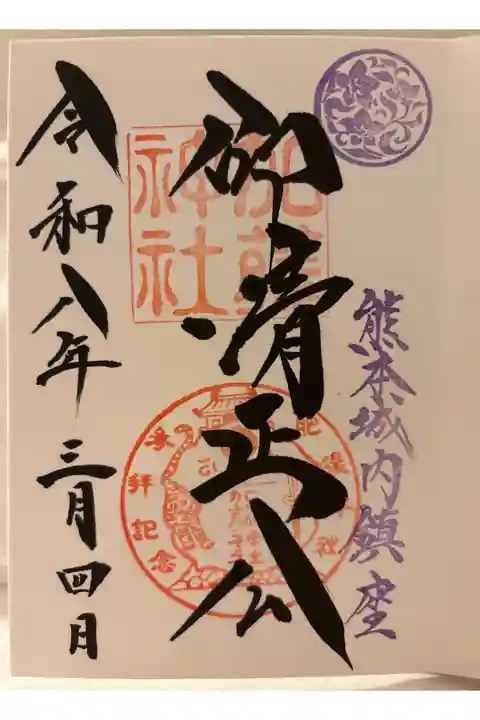 熊本城内鎮座
仰清正公
加藤
神社
参拝記念
令和八年 三月四日